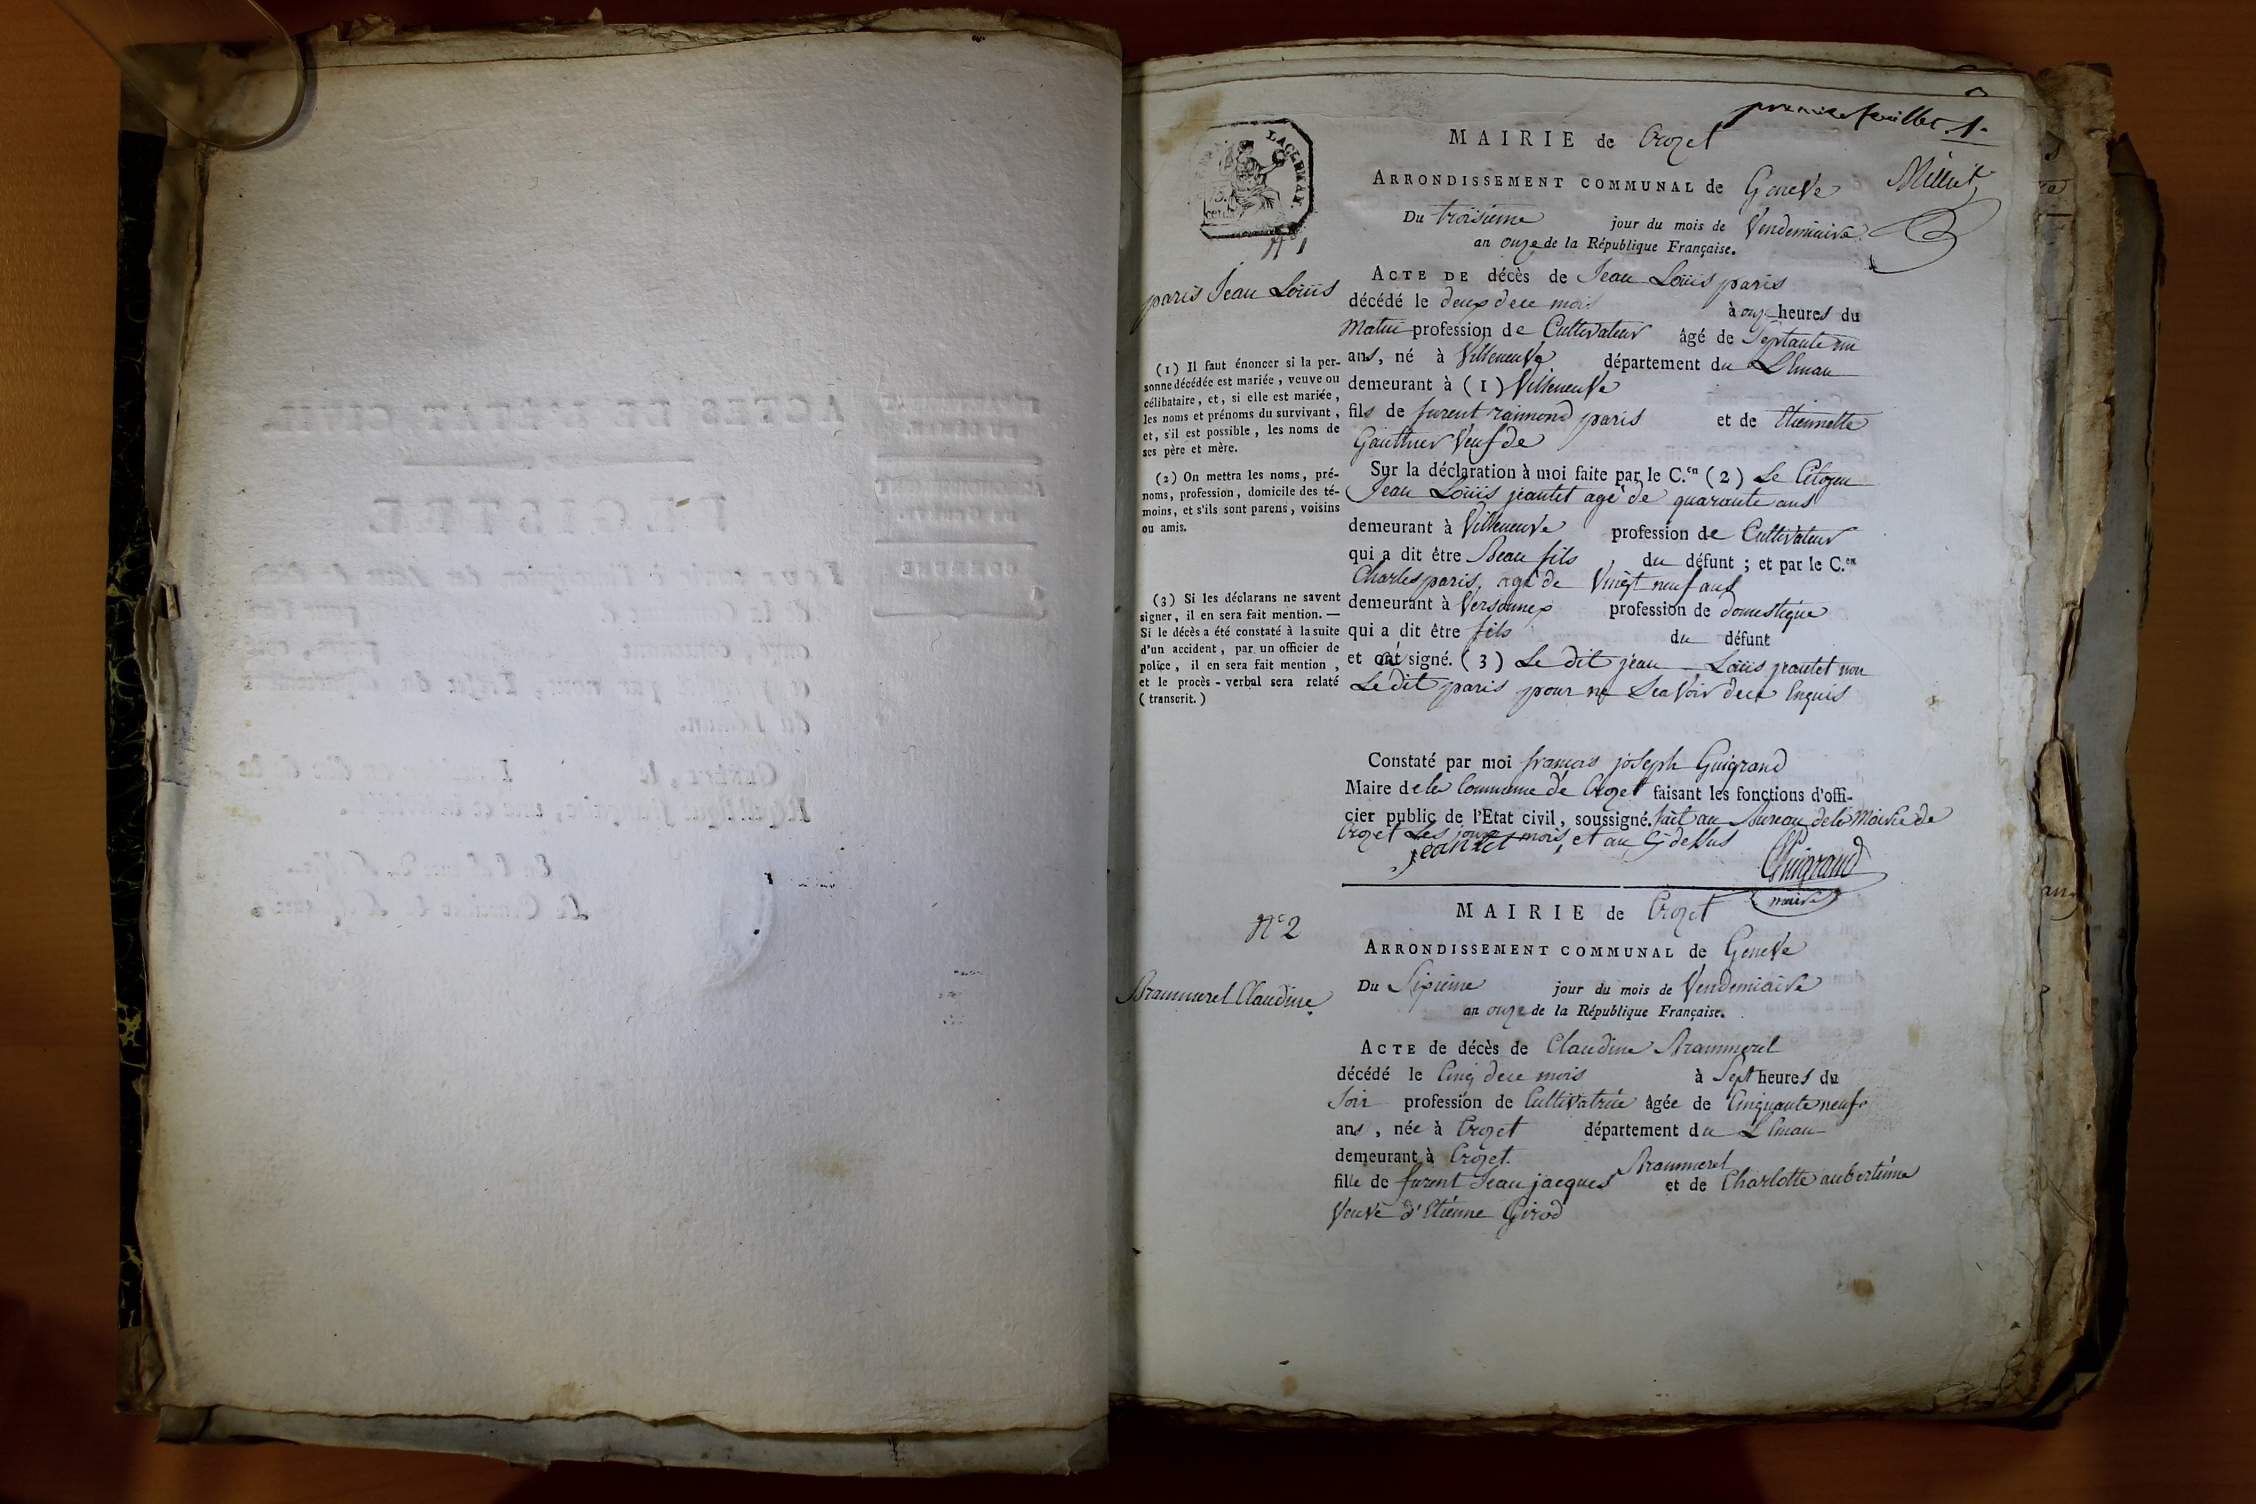 premier feuillet. 1.
MAIRIE de Crozet
Millet
ARRONDISSEMENT COMMUNAL de Geneve
Du troisieme jour du mois de Vendemiaire
an onze de la République Française.
Nº 1
paris Jean Loüis
ACTE DE décès de Jean Loüis paris
décédé le deux dece mois à onze heures du
Matin profession de Cultivateur âgé de Septante un
ans, né à Villeneuve département du Léman
demeurant à (1) Villeneuve
fils de furent raimond paris et de Etiennette
Gauthier Veuf de
Sur la déclaration à moi faite par le C.en (2) Le Citoyen
Jean Loüis jeantet agé de quarante ans
demeurant à Villeneuve profession de Cultivateur
qui a dit être Beau fils du défunt ; et par le C.en
Charles paris, agé de Vingt neuf ans
demeurant à Versonnex profession de domestique
qui a dit être fils du défunt
et signé. (3) Le dit jean Loüis jeantet non
Le dit paris pour ne Scavoir dece Enquis
Constaté par moi francois joseph Guigrand
Maire dela Commune de Crozet faisant les fonctions d'offi-
cier public de l'Etat civil, soussigné. fait au Bureau dela Mairie de
Crozet Les jour mois, et an Cy dessus
jeantet
Guigrand
maire
(1) Il faut énoncer si la per-
sonne décédée est mariée, veuve ou
célibataire, et, si elle est mariée,
les noms et prénoms du survivant,
et, s'il est possible, les noms de
ses père et mère.
(2) On mettra les noms, pré-
noms, profession, domicile des té-
moins, et s'ils sont parens, voisins
ou amis.
(3) Si les déclarans ne savent
signer, il en sera fait mention. —
Si le décès a été constaté à la suite
d'un accident, par un officier de
police, il en sera fait mention,
et le procès-verbal sera relaté
(transcrit.)
MAIRIE de Crozet
Nº 2
ARRONDISSEMENT COMMUNAL de Geneve
Brammerel Claudine
Du Sixieme jour du mois de Vendemiaire
an onze de la République Française.
ACTE de décès de Claudine Brammerel
décédé le Cinq dece mois à Sept heures du
Soir profession de Cultivatrice âgée de Cinquante neuf
ans, née à Crozet département du Léman
demeurant à Crozet.
fille de furent Jean jacques Brammerel et de Charlotte aubertinne
Veuve d'Etienne Girod